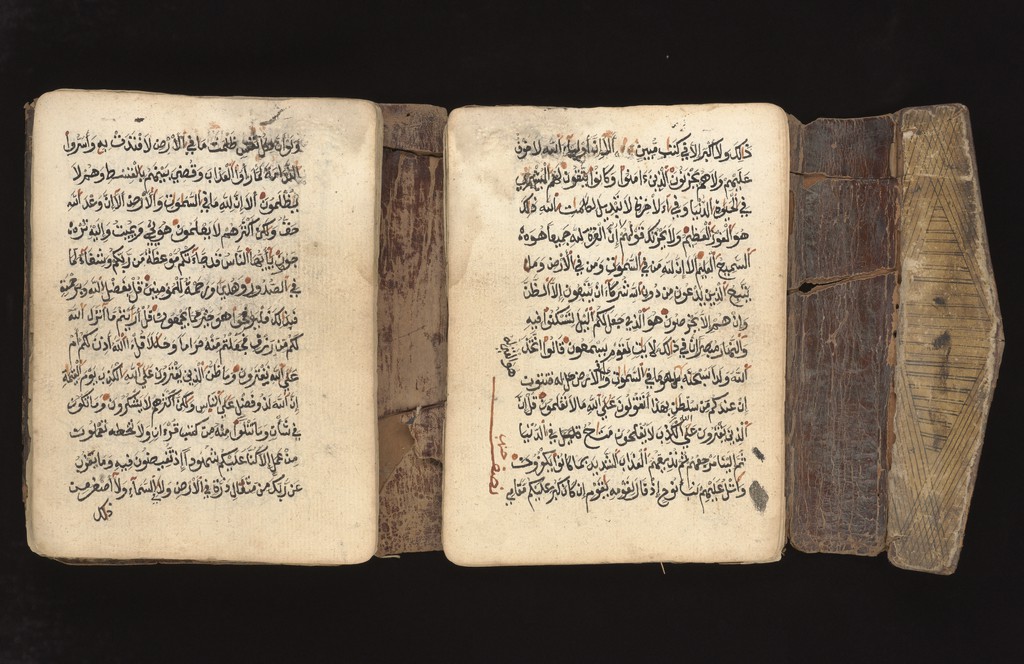 ولو ان لكل نفس ظلمت ما في الارض لافتدت به واسروا
الندامة لما راوا العذاب وقضي بينهم بالقسط وهم لا
يظلمون الا ان لله ما في السموت والارض الا ان وعد الله
حق ولكن اكثرهم لا يعلمون هو يحي ويميت واليه تر
جعون يايها الناس قد جاءتكم موعظة من ربكم وشفاء لما
في الصدور وهدى ورحمة للمومنين قل بفضل الله وبرحمته
فبذلك فليفرحوا هو خير مما يجمعون قل اريتم ما انزل الله
لكم من رزق فجعلتم منه حراما وحللا قل ءالله اذن لكم ام
على الله تفترون وما ظن الذين يفترون على الله الكذب يوم القيمة
ان الله لذو فضل على الناس ولكن اكثرهم لا يشكرون وما تكون
في شان وما تتلوا منه من قرءان ولا تعملون
من عمل الا كنا عليكم شهودا اذ تفيضون فيه وما يعزب
عن ربك من مثقال ذرة في الارض ولا في السماء ولا اصغر من
ذلك
ذلك ولا اكبر الا في كتب مبين الا ان اولياء الله لا خوف
عليهم ولا هم يحزنون الذين ءامنوا وكانوا يتقون لهم البشرى
في الحيوة الدنيا وفي الاخرة لا تبديل لكلمت الله ذلك
هو الفوز العظيم ولا يحزنك قولهم ان العزة لله جميعا هو
السميع العليم الا ان لله من في السموت ومن في الارض وما
يتبع الذين يدعون من دون الله شركاء ان يتبعون الا الظن
وان هم الا يخرصون هو الذي جعل لكم اليل لتسكنوا فيه
والنهار مبصرا ان في ذلك لايت لقوم يسمعون قالوا اتخذ
الله ولدا سبحنه له ما في السموت وما في الارض
ان عندكم من سلطن بهذا اتقولون على الله ما لا تعلمون قل ان
الذين يفترون على الله الكذب لا يفلحون متاع في الدنيا
ثم الينا مرجعهم ثم نذيقهم العذاب الشديد بما كانوا يكفرون
واتل عليهم نبا نوح اذ قال لقومه يقوم ان كان كبر عليكم مقامي
نصف حزب